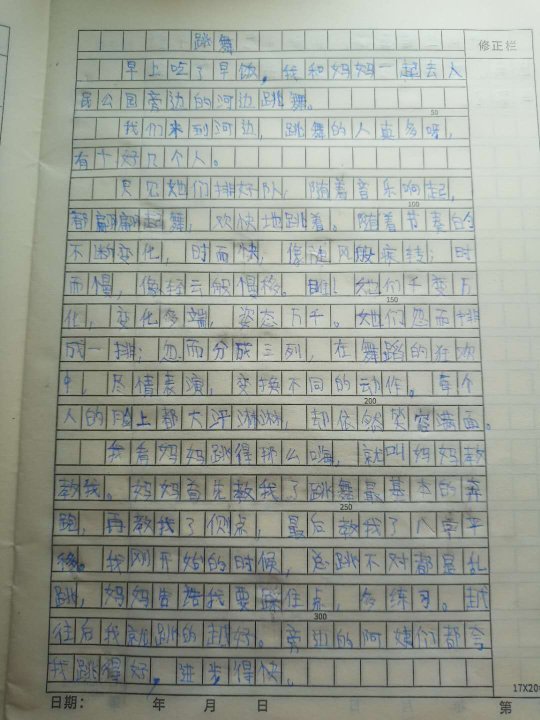 跳舞
修正栏
早上吃了早饭，我和妈妈一起去人
民公园旁边的河边跳舞。
50
我们来到河边，跳舞的人真多呀，
有十好几个人。
只见她们排好队，随着音乐响起，
100
都翩翩起舞，欢快地跳着。随着节奏的
不断变化，时而快，像旋风般旋转；时
而慢，像轻云般慢移。她们千变万
150
化，变化多端，姿态万千。她们忽而排
成一排；忽而分成三列，在舞蹈的狂欢
中，尽情表演，变换不同的动作。每个
200
人的脸上都大汗淋淋，却依然笑容满面。
我看妈妈跳得那么嗨，就叫妈妈教
教我。妈妈首先教我了跳舞最基本的奔
250
跑，再教我了侧点，最后教我了八字平
。我刚开始的时候，总跳不对都是乱
跳，妈妈告诉我要踩住点，多练习。越
300
往后我就跳的越好。旁边的阿姨们都夸
我跳得好，进步得快。
17X20
日期： 年 月 日 第